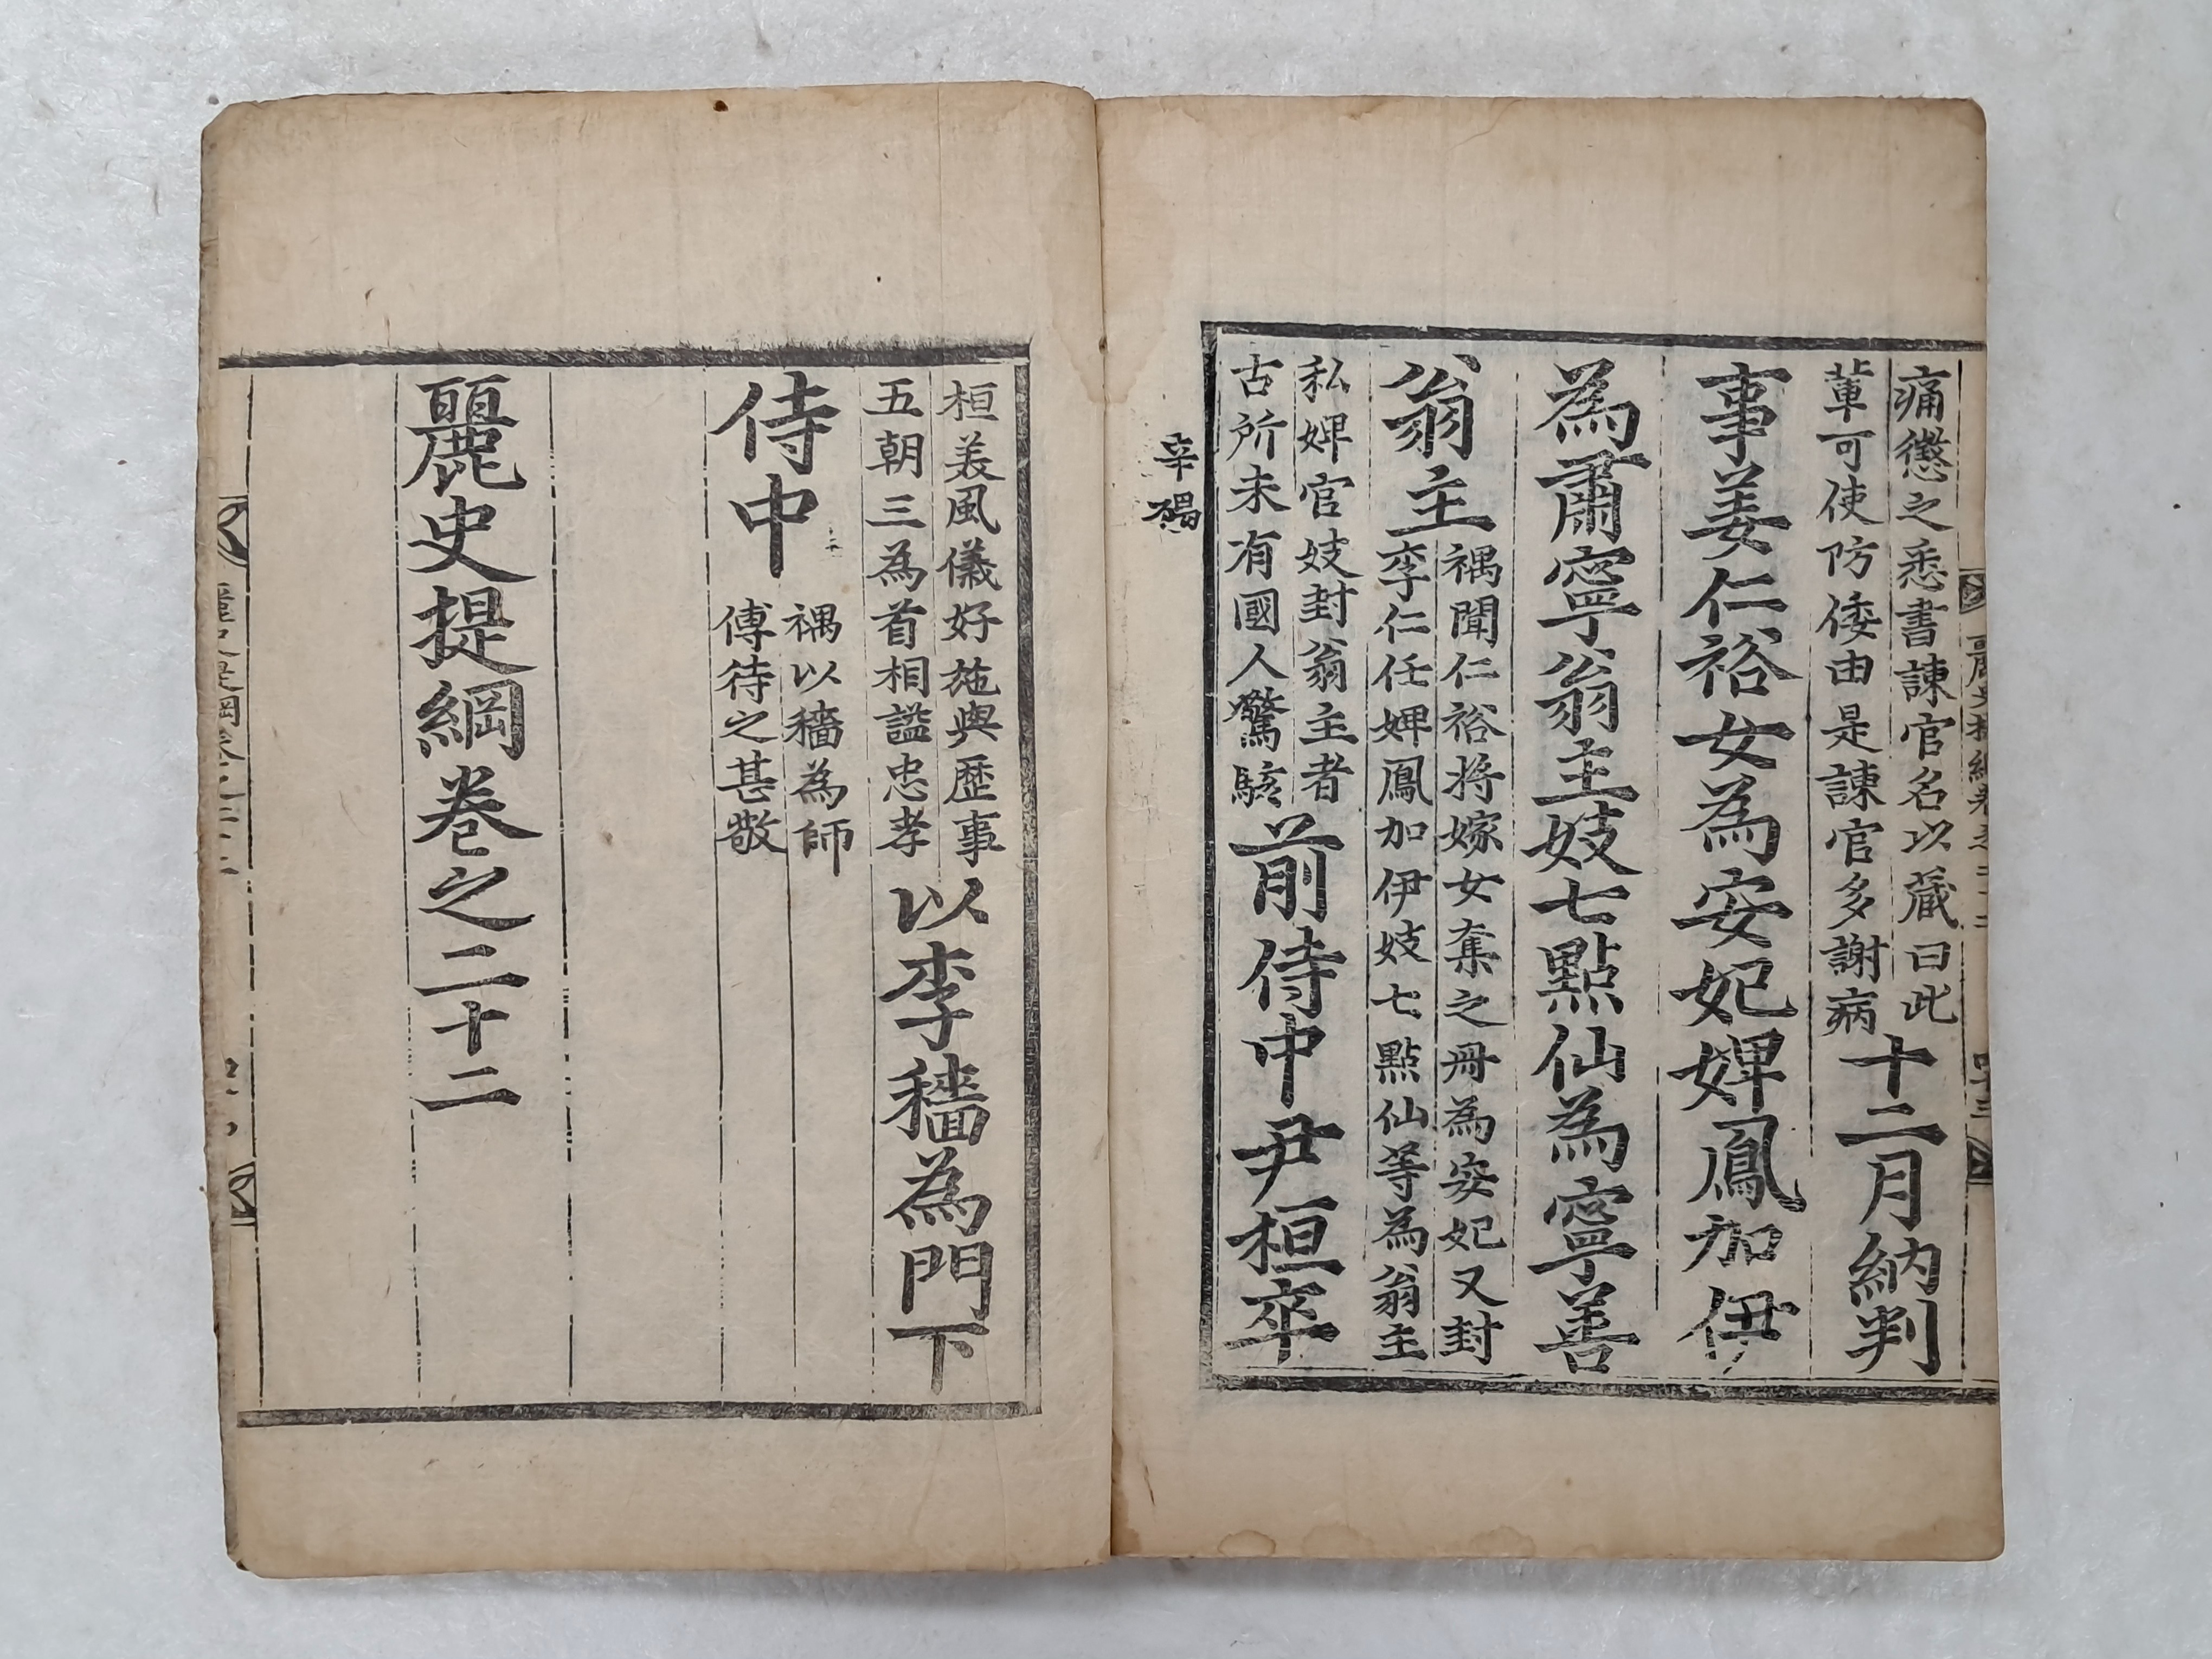 痛懲之悉書諫官名以藏曰此
輩可使防倭由是諫官多謝病
十二月納判
事姜仁裕女為安妃婢鳳加伊
為肅寧翁主妓七點仙為寧善
翁主
禑聞仁裕將嫁女奪之冊為安妃又封
李仁任婢鳳加伊妓七點仙等為翁主
私婢官妓封翁主者
古所未有國人驚駭
前侍中尹桓卒
辛禑
桓美風儀好施與歷事
五朝三為首相謚忠孝
以李穡為門下
侍中
禑以穡為師
傅待之甚敬
麗史提綱卷之二十二